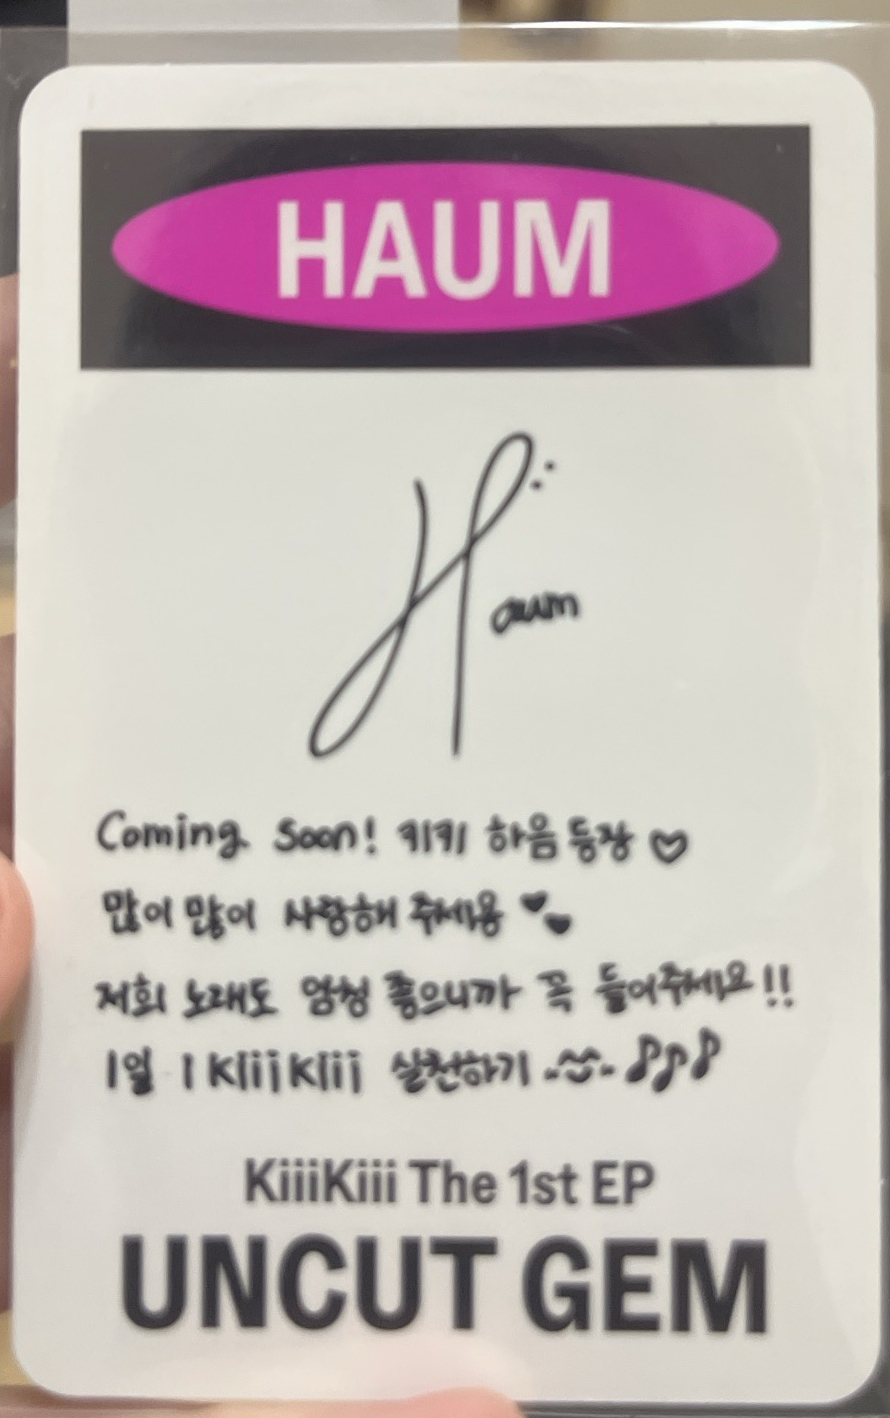 HAUM
Haum
Coming Soon! 키키 하음 등장 ♡
많이 많이 사랑해 주세용 ♥♥
저희 노래도 엄청 좋으니까 꼭 들어주세요!!
1일 1 KiiiKiii 실천하기 ♪♪♪
KiiiKiii The 1st EP
UNCUT GEM